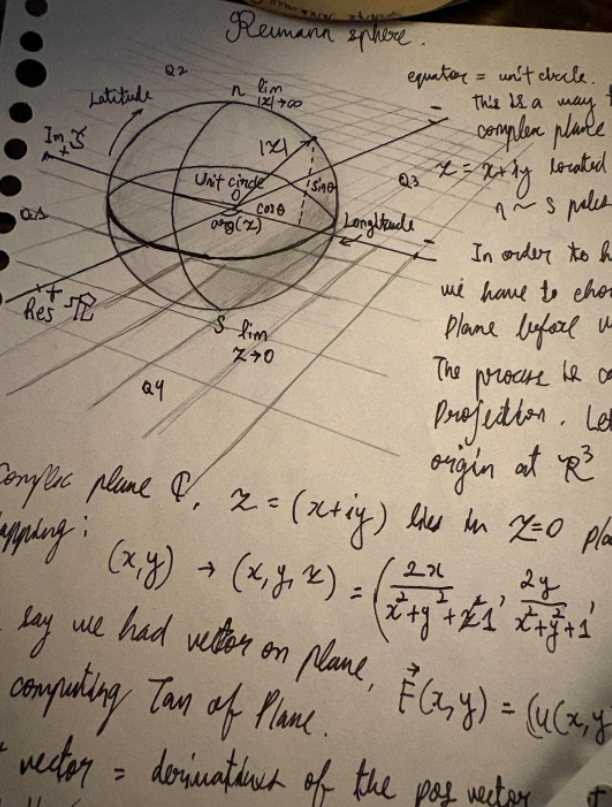 Reimann sphere.
Q2
n lim
|z|→∞
Latitude
Im
+
|z|
Unit circle
0
cosθ
sinθ
arg(z)
Q1
Q3
Longitude
-
-
+
Res
S lim
z→0
Q4
equator = unit circle.
this is a way
complex plane
z = x+iy located
n ~ s poles
In order to h
we have to choo
plane before w
The process is ca
Projection. Let
origin at R³
Complex plane ℂ, z = (x+iy) lies in z=0 pla
apping:
(x,y) → (x, y, z) = (2x / x²+y²+1, 2y / x²+y²+1,
say we had vector on plane, F⃗(x,y) = (u(x,y
computing Tan of Plane.
vector = derivatives of the pos vector